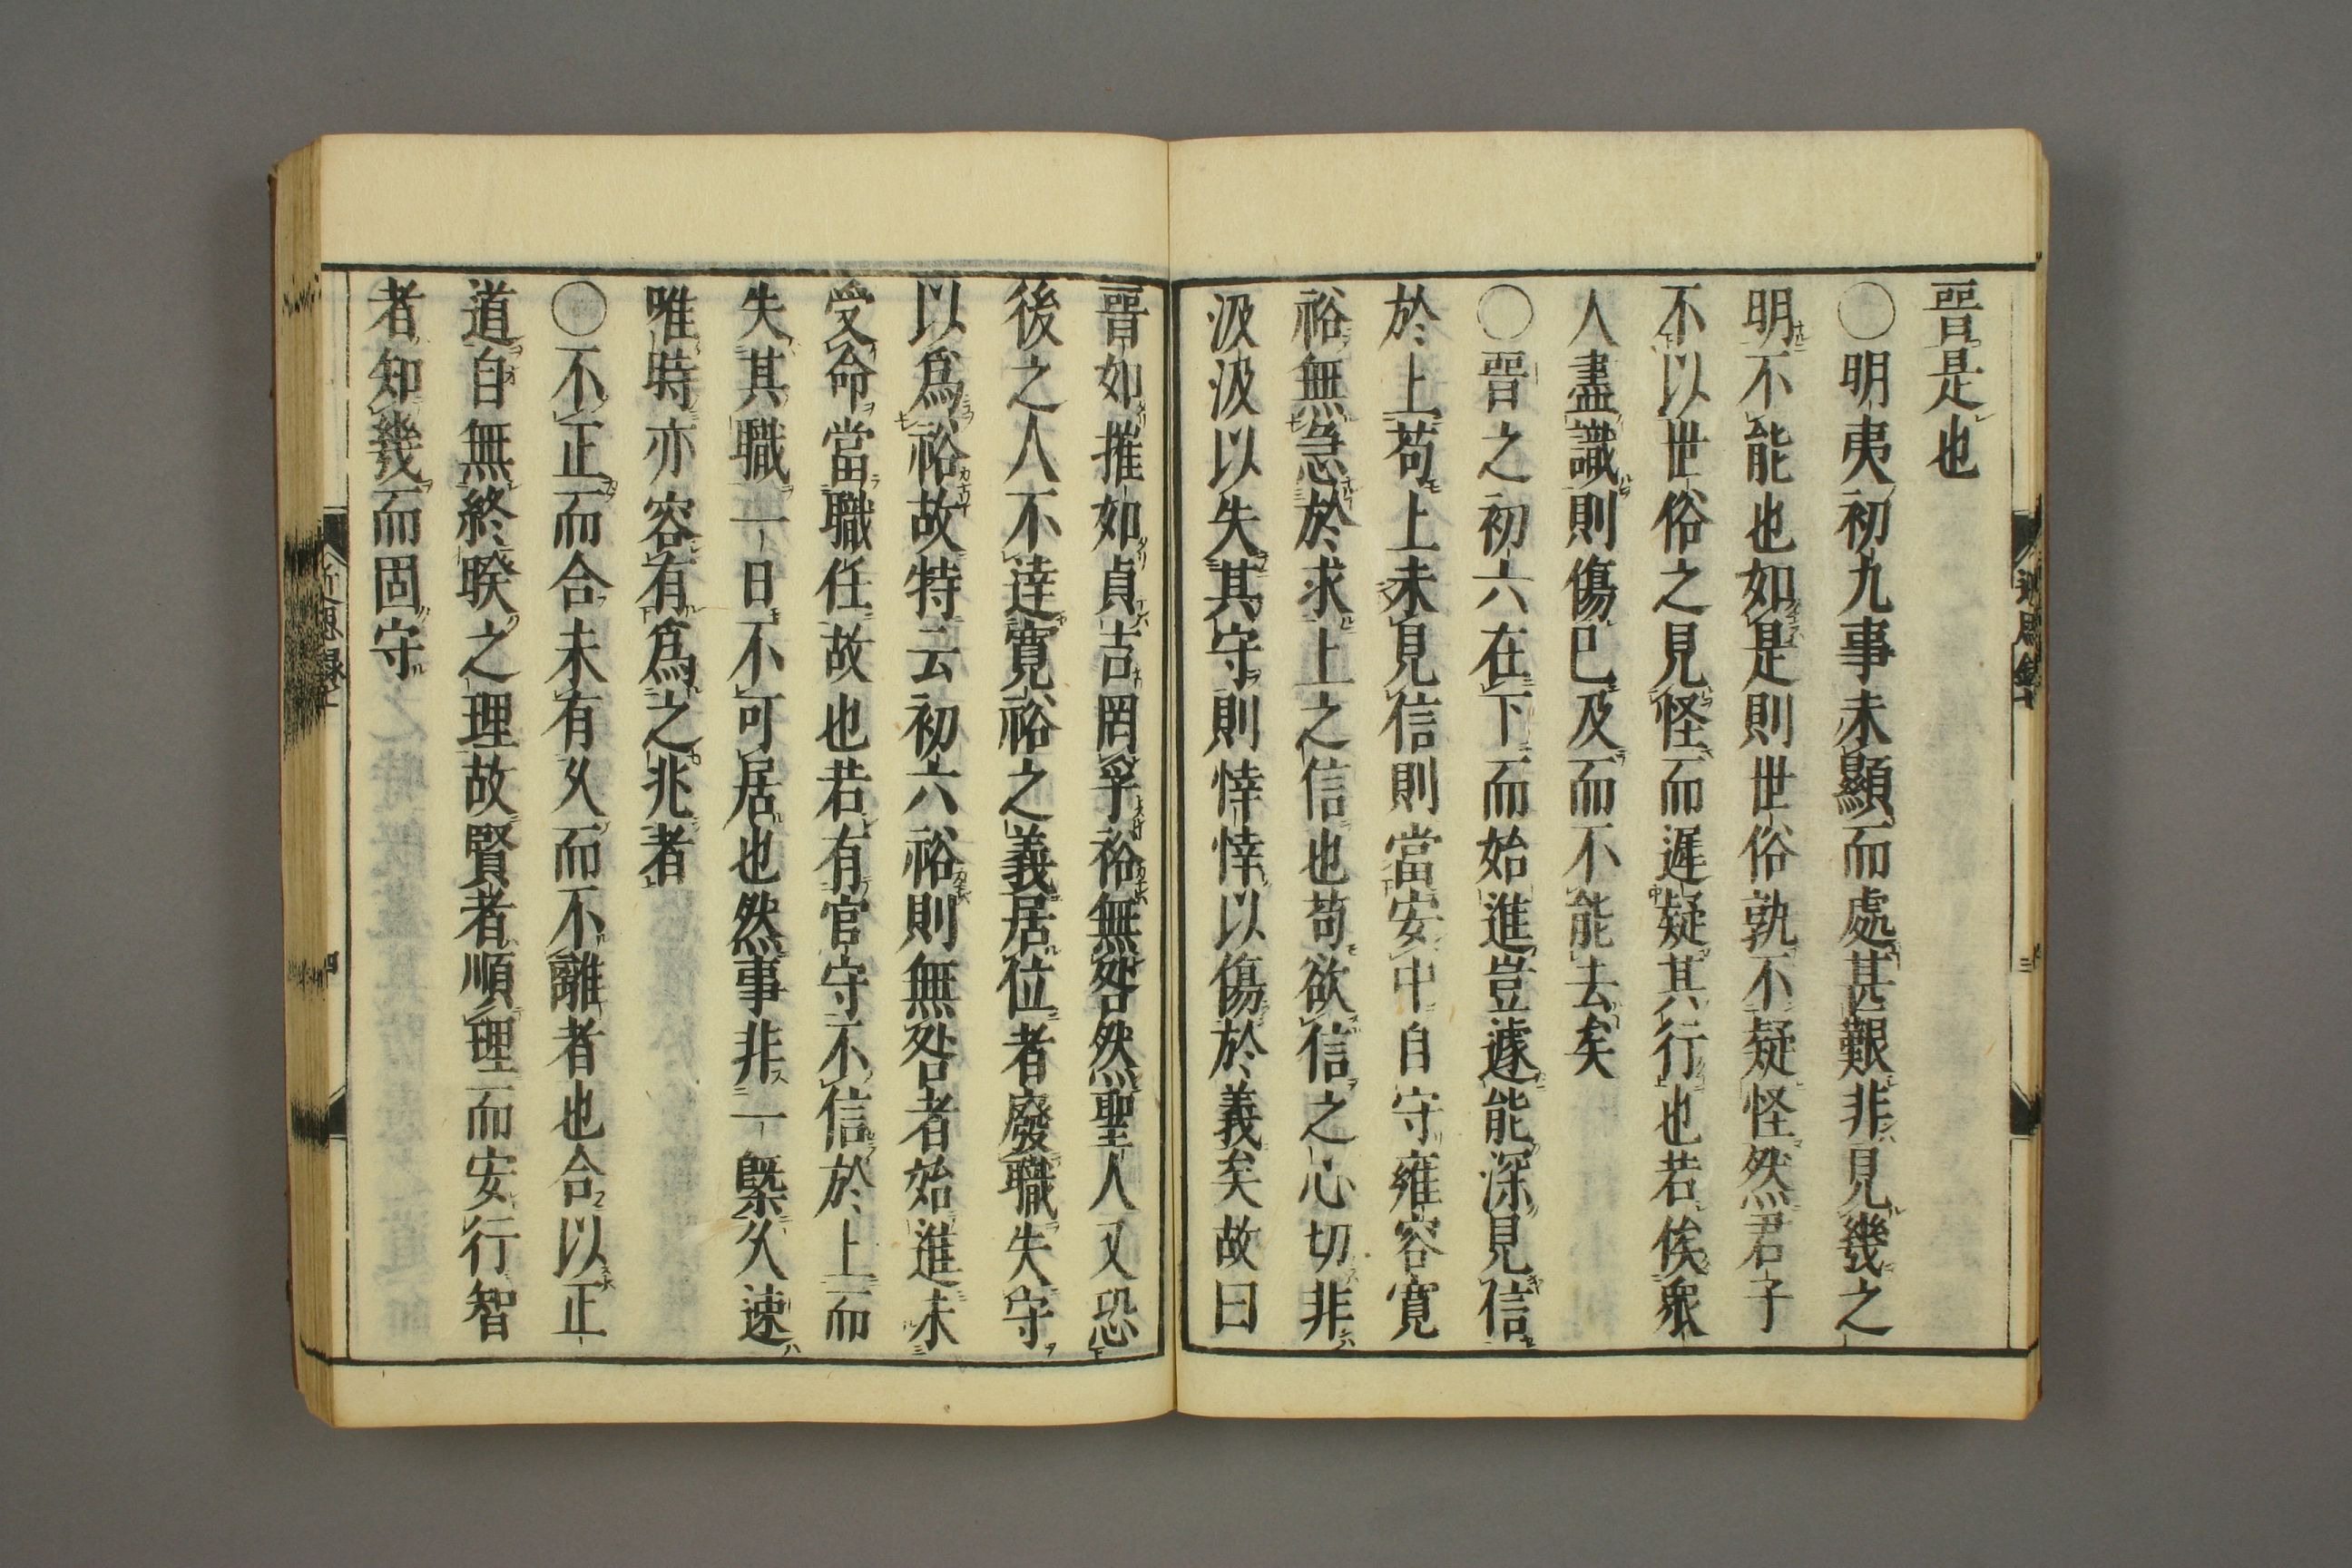 晉是也
〇明夷初九事未顯而處甚艱非見幾之
明不能也如是則世俗孰不疑怪然君子
不以世俗之見怪而遲疑其行也若俟衆
人盡識則傷已及而不能去矣
〇晉之初六在下而始進豈遽能深見信
於上苟上未見信則當安中自守雍容寛
裕無急於求上之信也苟欲信之心切非
汲汲以失其守則悻悻以傷於義矣故曰
晉如摧如貞吉罔孚裕無咎然聖人又恐
後之人不逹寛裕之義居位者廢職失守
以爲裕故特云初六裕則無咎者始進未
受命當職任故也若有官守不信於上而
失其職一日不可居也然事非一槩久速
唯時亦容有爲之兆者
〇不正而合未有久而不離者也合以正
道自無終睽之理故賢者順理而安行智
者知幾而固守